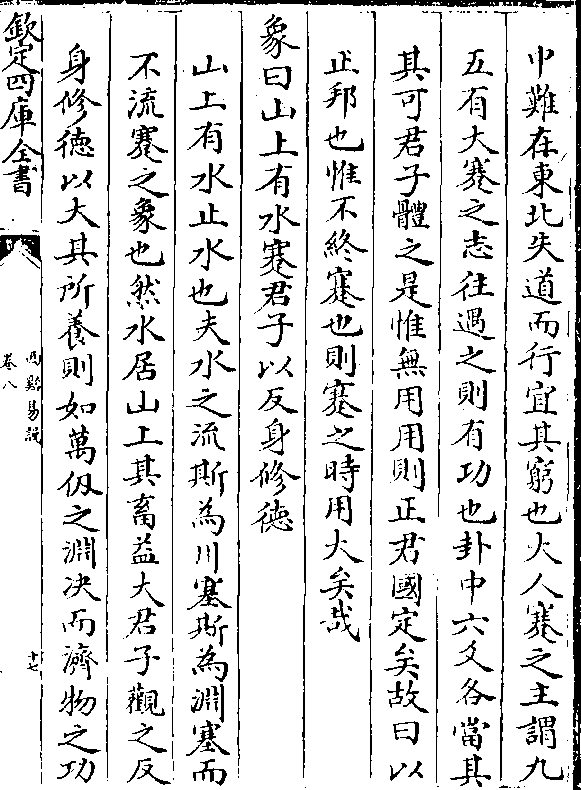 中難在東北失道而行宜其窮也大人蹇之主謂九
五有大蹇之志往遇之則有功也卦中六爻各當其
其可君子體之是惟無用用則正君國定矣故曰以
正邦也惟不終蹇也則蹇之時用大矣哉
象曰山上有水蹇君子以反身修德
山上有水止水也夫水之流斯為川塞斯為淵塞而
不流蹇之象也然水居山上其畜益大君子觀之反
身修德以大其所養則如萬仭之淵决而濟物之功
欽定四庫全書
卷八
易說
十七